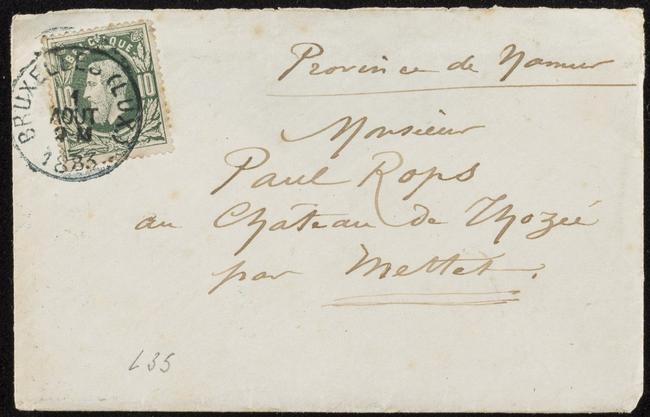 BELGIQUE
10
BRUXELLES (LUX)
1
AOUT
9-M
1883
Province de Namur
Monsieur
Paul Rops
au Château de Thozée
par Mettet.
L35